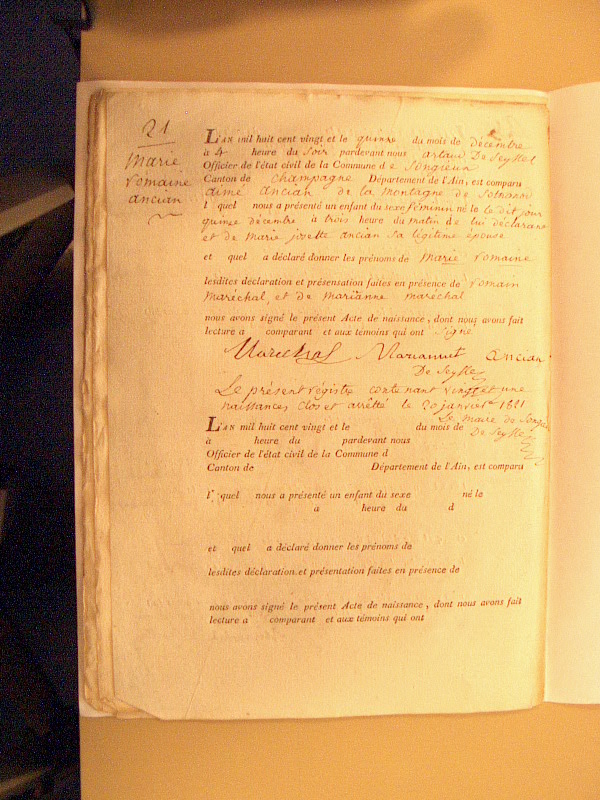 21
Marie
romaine
ancian
L'AN mil huit cent vingt et le quinze du mois de décembre
à 4 heure du soir pardevant nous artaud De Seyssel
Officier de l'état civil de la Commune de Songieu
Canton de champagne Département de l'Ain, est comparu
aimé ancian de la montagne de
l quel nous a présenté un enfant du sexe féminin né le le dit jour
quinze décembre à trois heure du matin de lui déclarant
et de marie josette ancian sa légitime épouse
et quel a déclaré donner les prénoms de marie romaine
lesdites déclaration et présensation faites en présence de romain
maréchal et de marianne maréchal
nous avons signé le présent Acte de naissance, dont nous avons fait
lecture a comparant et aux témoins qui ont signé
Marechal ancian
De Seyssel
Le présent régistre contenant vingt et une
naissances clos et arrêtté le 20 janvier 1821
Le maire de Songieu
De Seyssel
L'AN mil huit cent vingt et le du mois de
à heure du pardevant nous
Officier de l'état civil de la Commune d
Canton de Département de l'Ain, est comparu
l quel nous a présenté un enfant du sexe né le
a heure du d
et quel a déclaré donner les prénoms de
lesdites déclaration et présentation faites en présence de
nous avons signé le présent Acte de naissance, dont nous avons fait
lecture a comparant et aux témoins qui ont